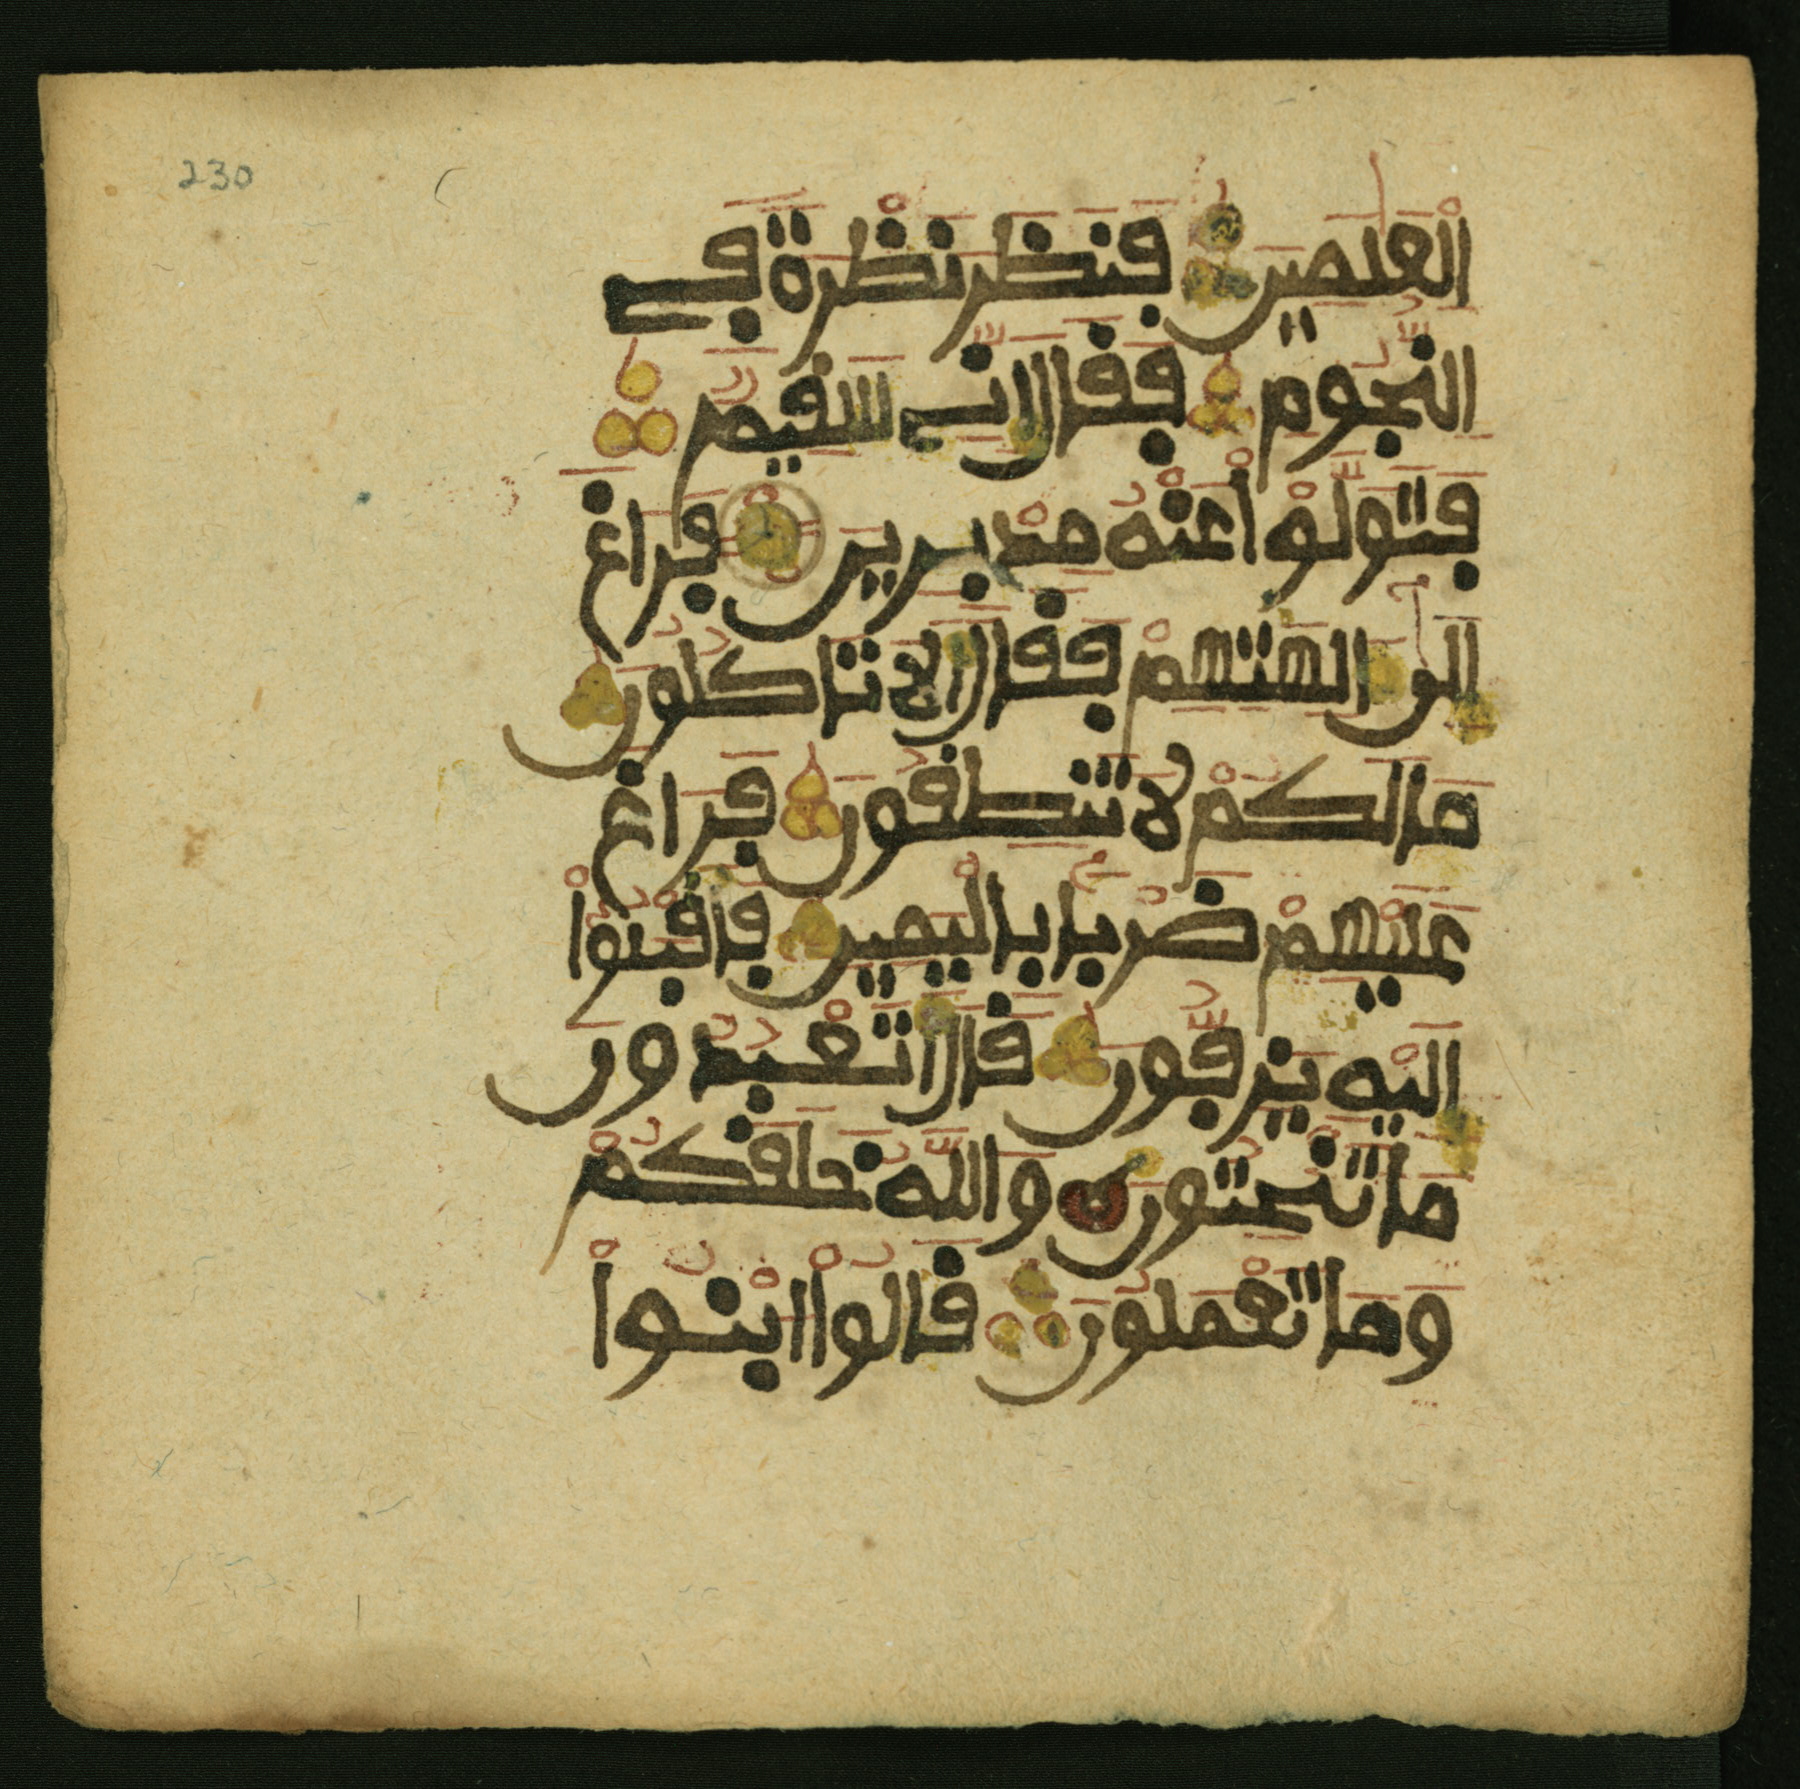 230
الْعَٰلَمِينَ فَنَظَرَ نَظْرَةً فِے
النُّجُومِ فَقَالَ إِنِّے سَقِيمٌ
فَتَوَلَّوْاْ عَنْهُ مُدْبِرِينَ فَرَاغَ
إِلَىٰ ءَالِهَتِهِمْ فَقَالَ أَلَا تَاكُلُونَ
مَا لَكُمْ لَا تَنطِقُونَ فَرَاغَ
عَلَيْهِمْ ضَرْباً بِالْيَمِينِ فَأَقْبَلُوٓاْ
إِلَيْهِ يَزِفُّونَ قَالَ أَتَعْبُدُونَ
مَا تَنْحِتُونَ وَاللَّهُ خَلَقَكُمْ
وَمَا تَعْمَلُونَ قَالُواْ ابْنُواْ